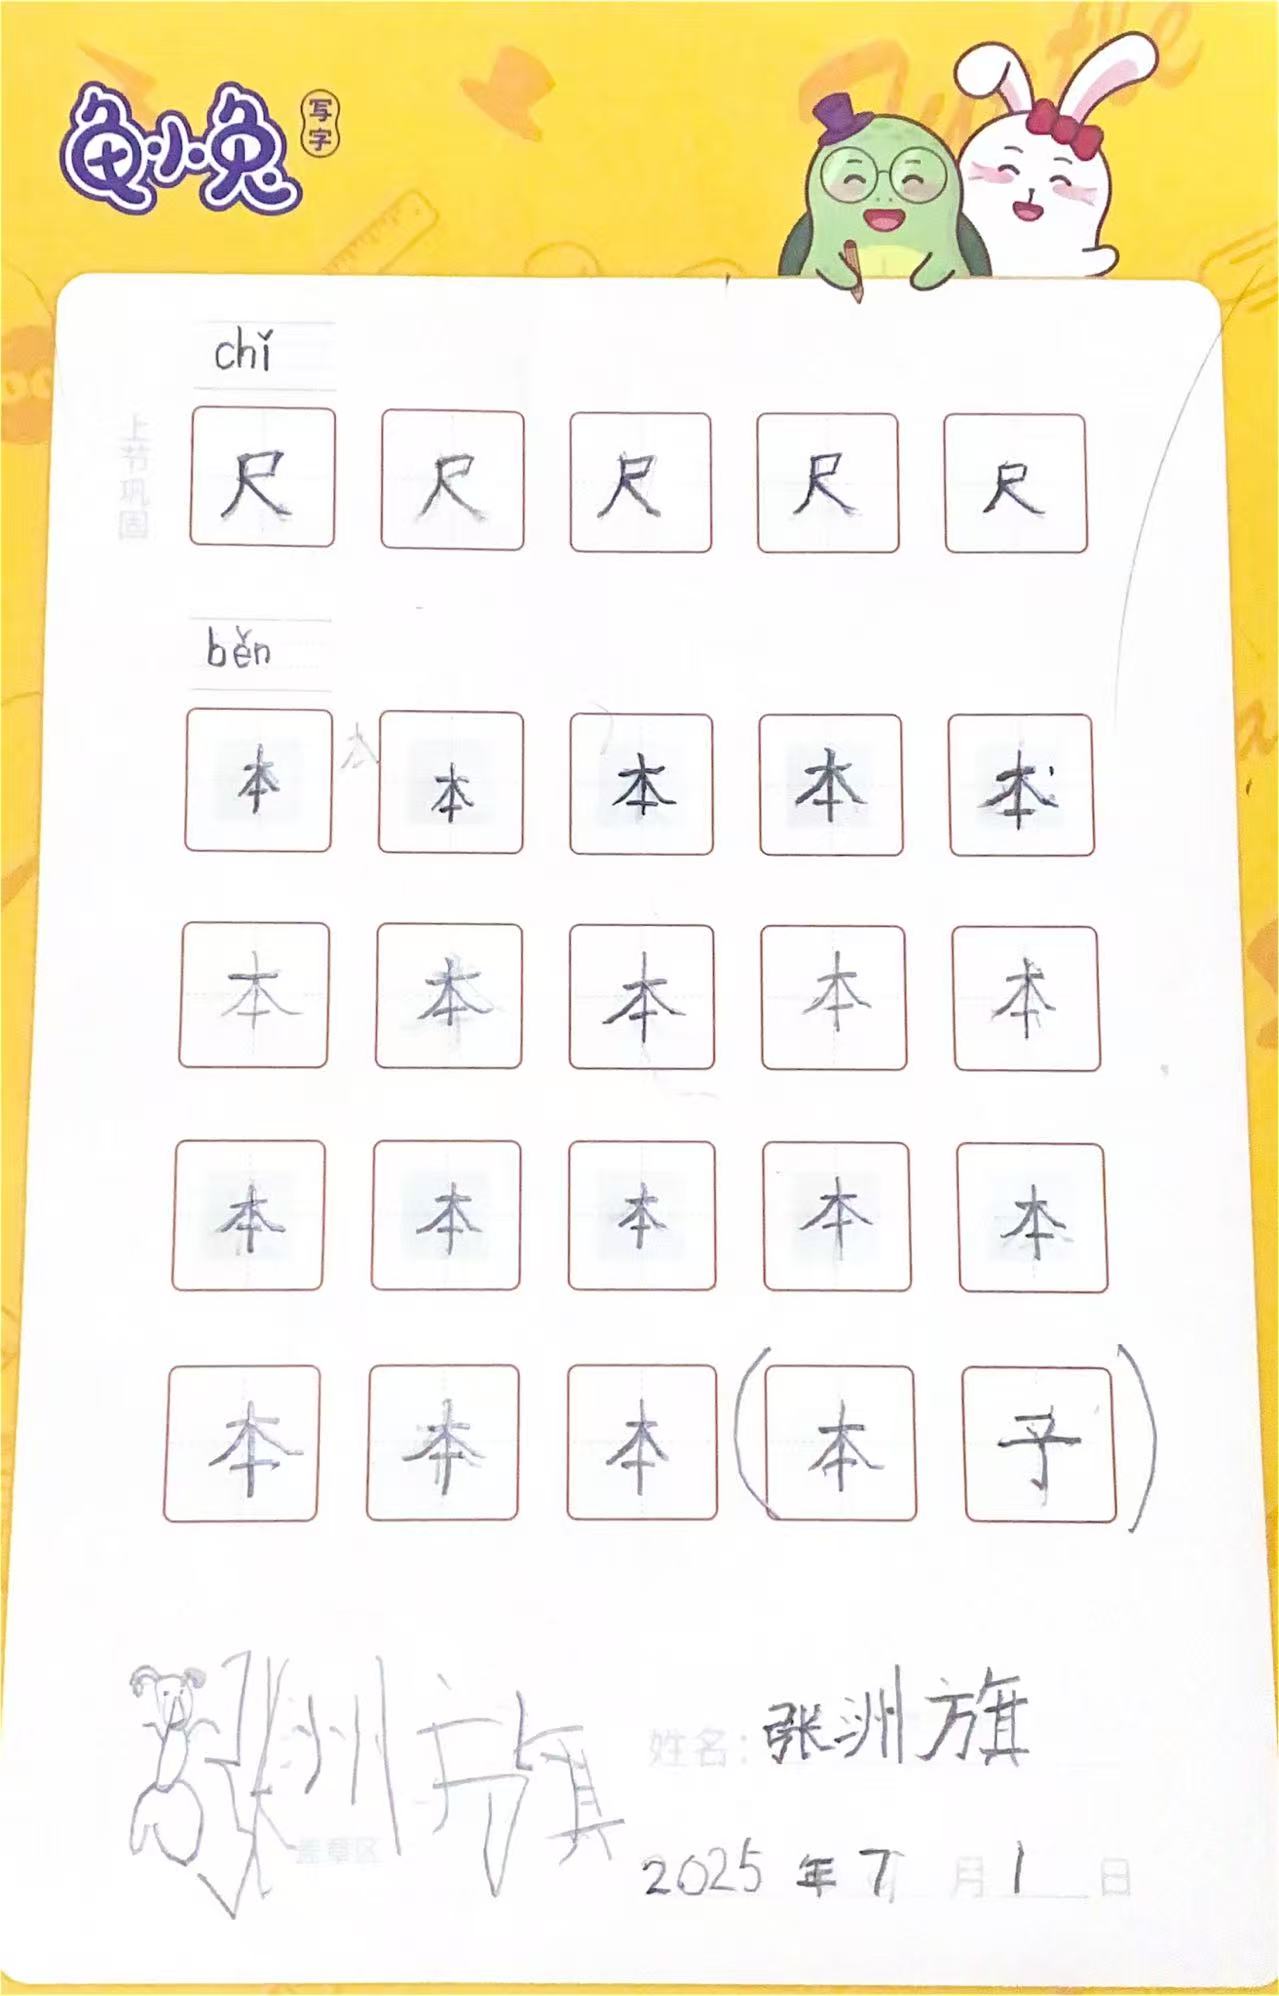 龟小兔 写字
chǐ
上节巩固
尺 尺 尺 尺 尺
běn
本
本 本 本 本 本
本 本 本 本 本
本 本 本 本 本
本 本 本 (本 子)
张洲旗
盖章区
姓名：张洲旗
2025年7月1日